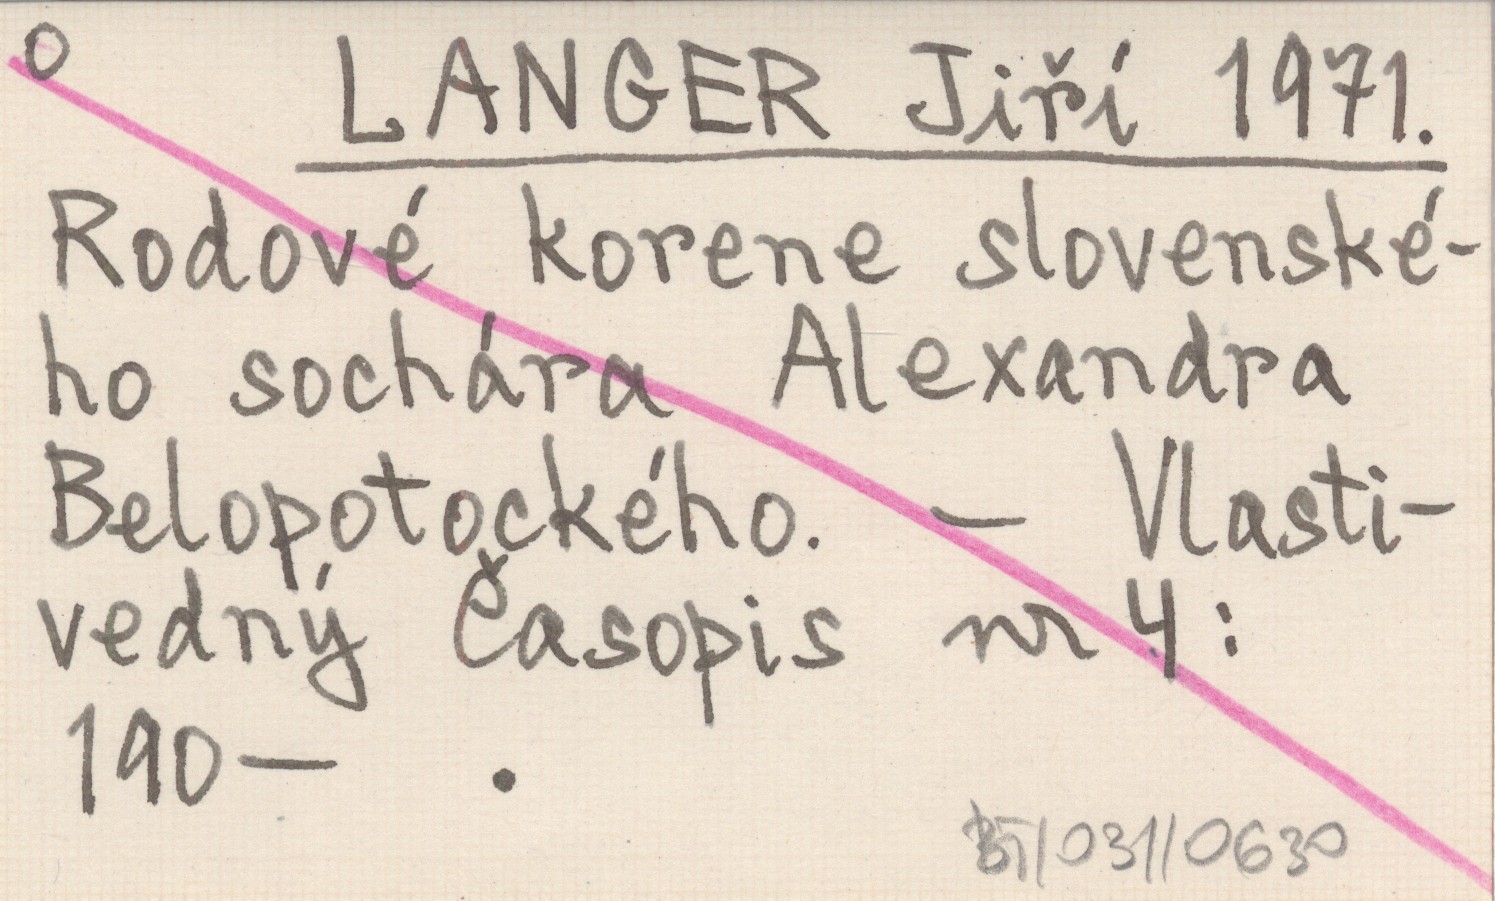 o
LANGER Jiří 1971.
Rodové korene slovenské-
ho sochára Alexandra
Belopotockého. — Vlasti-
vedný Časopis nr 4:
190— .
BT/031/0630